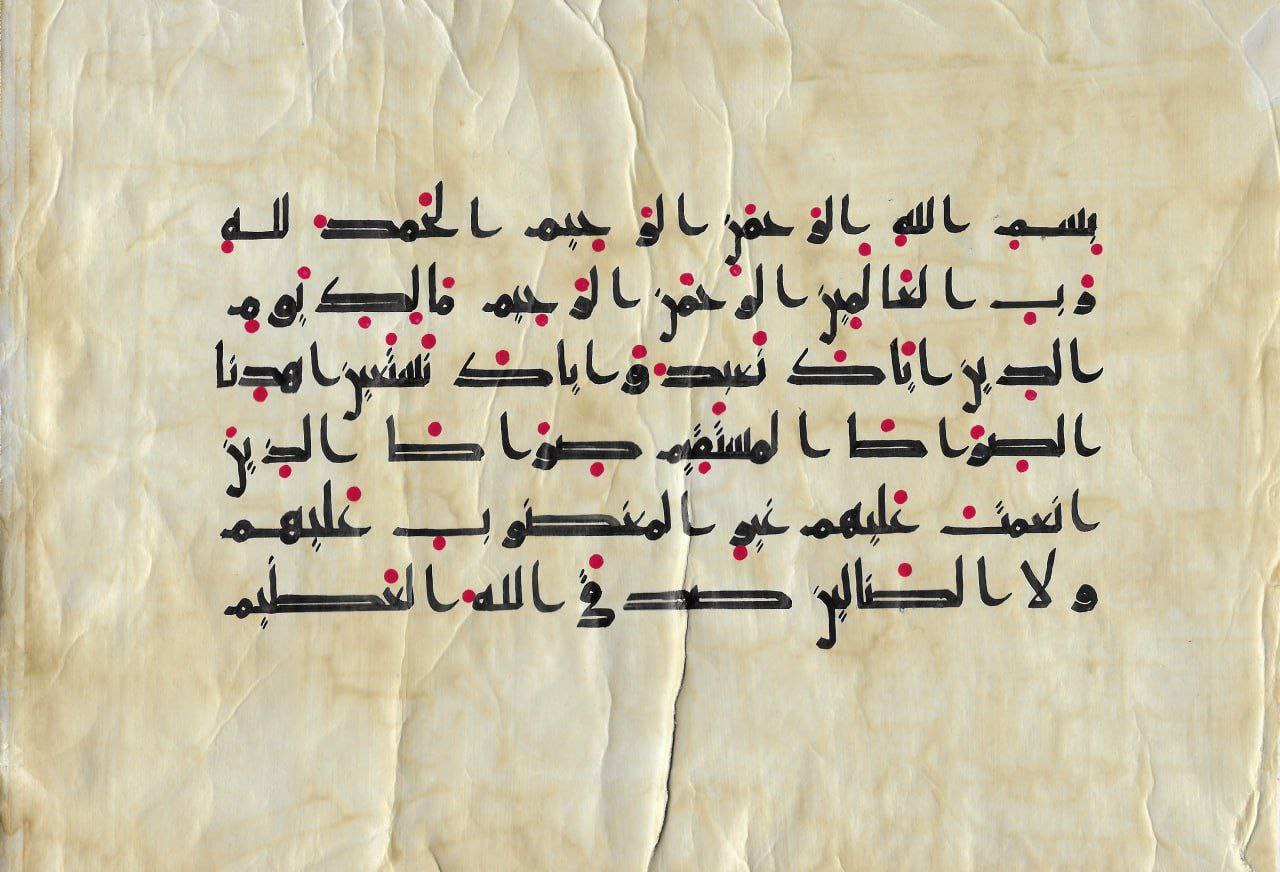 بسم الله الرحمن الرحيم الحمد لله
رب العالمين الرحمن الرحيم مالك يوم
الدين اياك نعبد و اياك نستعين اهدنا
الصراط المستقيم صراط الذين
انعمت عليهم غير المغضوب عليهم
و لا الضالين صدق الله العظيم